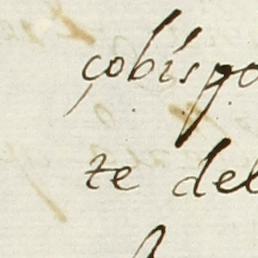 çobispo
te del